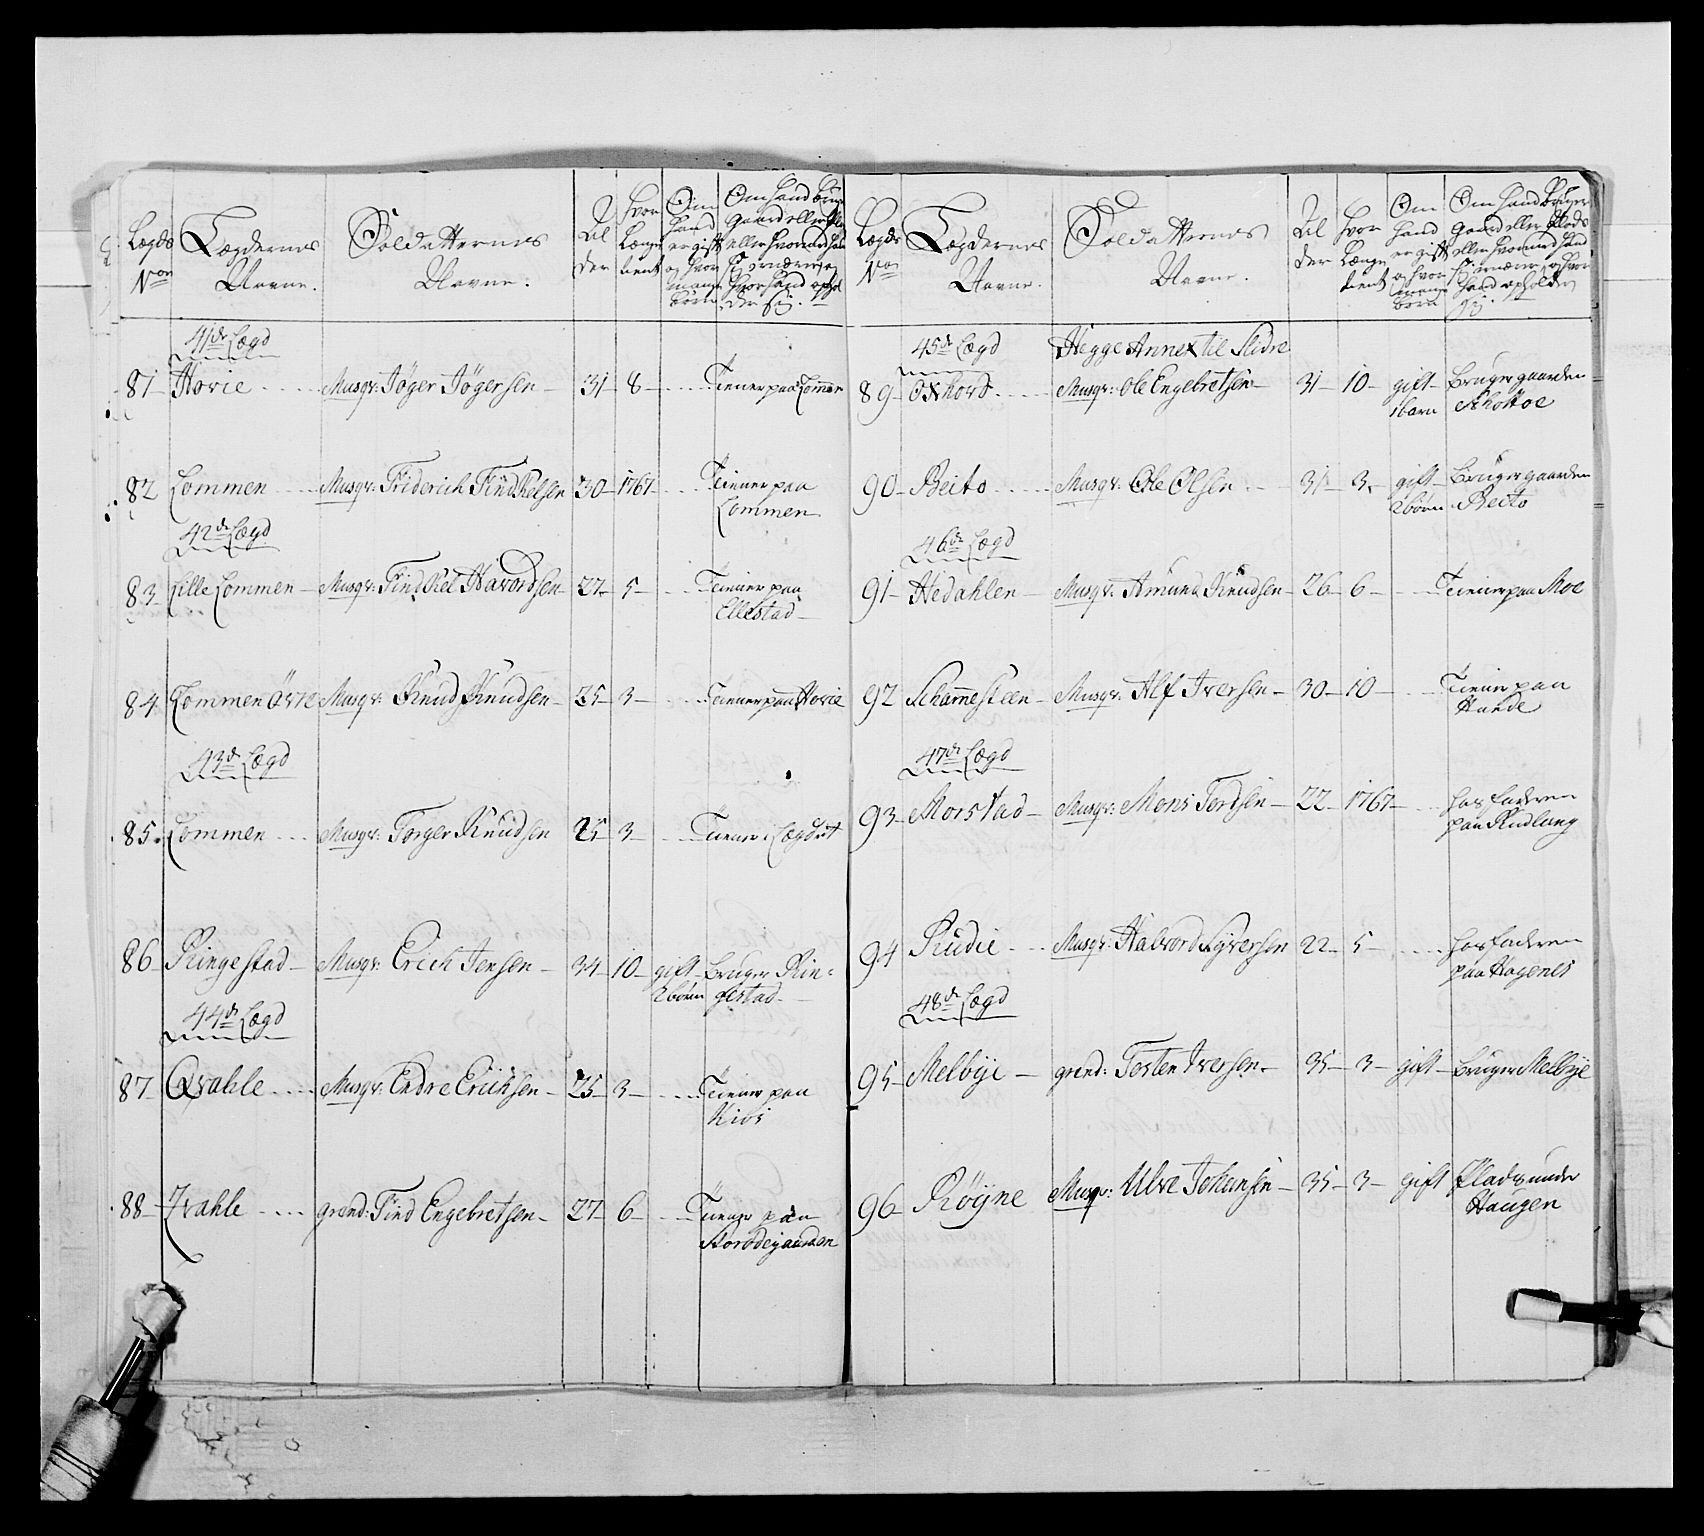 Lægds No
Lægdernes Navne.
Soldatternes Navne.
Alder
Hvor Længe tient
Om hand er gift og hvor mange børn
Om hand bruger Gaard eller Plads eller hvormed hand sig ernærer og hvor hand opholder sig.
41de Lægd
81 Hovie Musqr: Jöger Jögersen 31 8 Tiener paa Lommen
82 Lommen Musqr: Friderich Findkelsen 30 1767 Tiener paa
Lommen
42de Lægd
83 Lille Lommen Musqr: Findkel Havordsen 27 5 Tiener paa
Ellestad
84 Lommen Övre Musqr: Knud Knudsen 25 3 Tiener paa Hovie
43de Lægd
85 Lommen Musqr: Torger Knudsen 25 3 Tiener i Lægdet
86 Ringestad Musqr: Erich Jensen 34 10 gift Bruger Rin=
2 börn gestad
44de Lægd
87 Qvahle Musqr: Endre Erichsen 25 3 Tiener paa
Kios
88 Qvahle grend: Find Engebretsen 27 6 Tiener paa
Lægds No
Lægdernes Navne.
Soldatternes Navne.
Alder
Hvor Længe tient
Om Hand er gift og hvor mange börn
Om Hand Bruger Gaard eller Plads eller hvormed hand sig ernærer, og hvor hand opholder sig.
45de Lægd Hegge Annex til Slidre
89 Oxhovd Musqr: Ole Engebretsen 31 10 gift Bruger gaarden
1 barn
90 Beito Musqr: Ole Olsen 31 3 gift Bruger gaarden
2 börn Beito
46de Lægd
91 Hedahlen Musqr: Amund Knudsen 26 6 Tiener paa Moe
92 Schammesteen Musqr: Alf Iversen 30 10 Tiener paa
Hande
47de Lægd
93 Morstad Musqr: Mons Tordsen 22 1767 hos faderen
paa Rudlang
94 Rudie Musqr: Halvord Syversen 22 5 hos faderen
paa Hagenes
48de Lægd
95 Melbÿe grend: Tosten Iversen 35 3 gift Bruger Melbÿe
96 Röÿne Musqr: Ulve Johansen 35 3 gift Plads under
Haugen